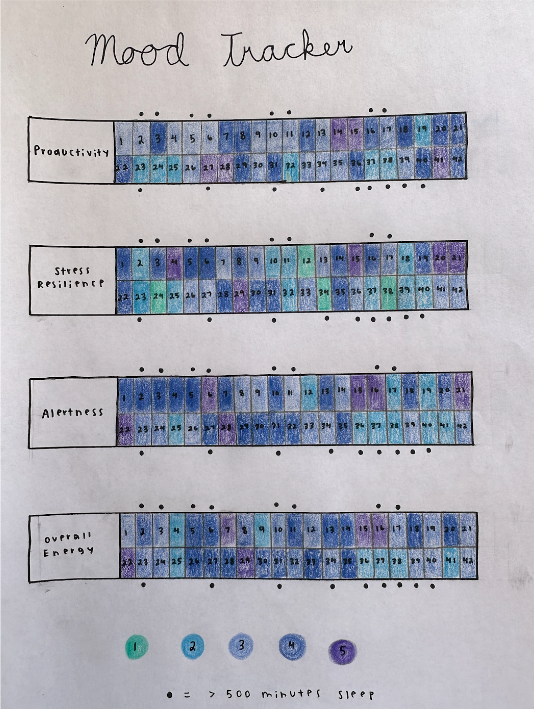 Mood Tracker
Productivity
1 2 3 4 5 6 7 8 9 10 11 12 13 14 15 16 17 18 19 20 21
22 23 24 25 26 27 28 29 30 31 32 33 34 35 36 37 38 39 40 41 42
Stress
Resilience
1 2 3 4 5 6 7 8 9 10 11 12 13 14 15 16 17 18 19 20 21
22 23 24 25 26 27 28 29 30 31 32 33 34 35 36 37 38 39 40 41 42
Alertness
1 2 3 4 5 6 7 8 9 10 11 12 13 14 15 16 17 18 19 20 21
22 23 24 25 26 27 28 29 30 31 32 33 34 35 36 37 38 39 40 41 42
Overall
Energy
1 2 3 4 5 6 7 8 9 10 11 12 13 14 15 16 17 18 19 20 21
22 23 24 25 26 27 28 29 30 31 32 33 34 35 36 37 38 39 40 41 42
1 2 3 4 5
• = > 500 minutes sleep